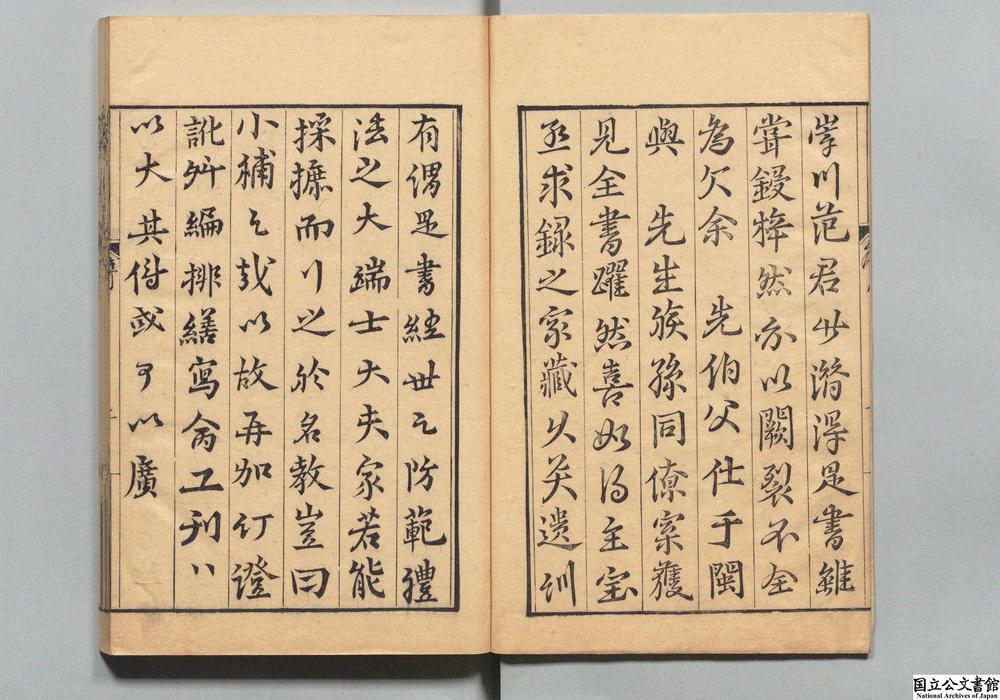 川范君潛淂是書雖
嘗鋟梓然亦以闕裂不全
為欠余 先伯父仕于閩
與 先生族孫同僚寀獲
見全書躍然喜如得至宝
亟求録之家藏久矣遺訓
有偶是書経世之防範禮
法之大端士大夫家若能
採摭而行之於名教豈曰
小補之哉以故再加訂證
訛舛編排繕寫命工刊
以大其傳或可以廣
国立公文書館
National Archives of Japan